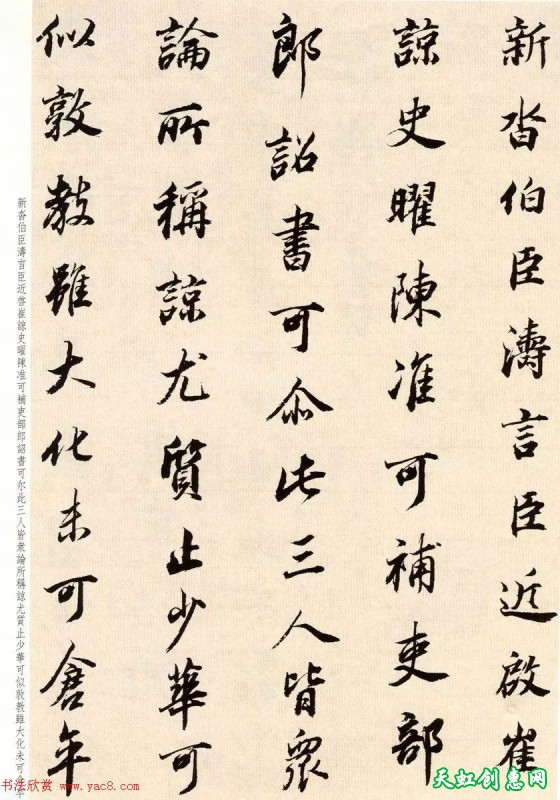 新沓伯臣濤言臣近啟崔
諒史曜陳准可補吏部
郎詔書可尒此三人皆眾
論所稱諒尤質止少華可
似敦教雖大化未可倉卒
新沓伯臣濤言臣近啓崔諒史曜陳准可補吏部郎詔書可尔此三人皆衆論所稱諒尤質止少華可似敦教雖大化未可
书法欣赏 www.yac8.com
天虹创意网